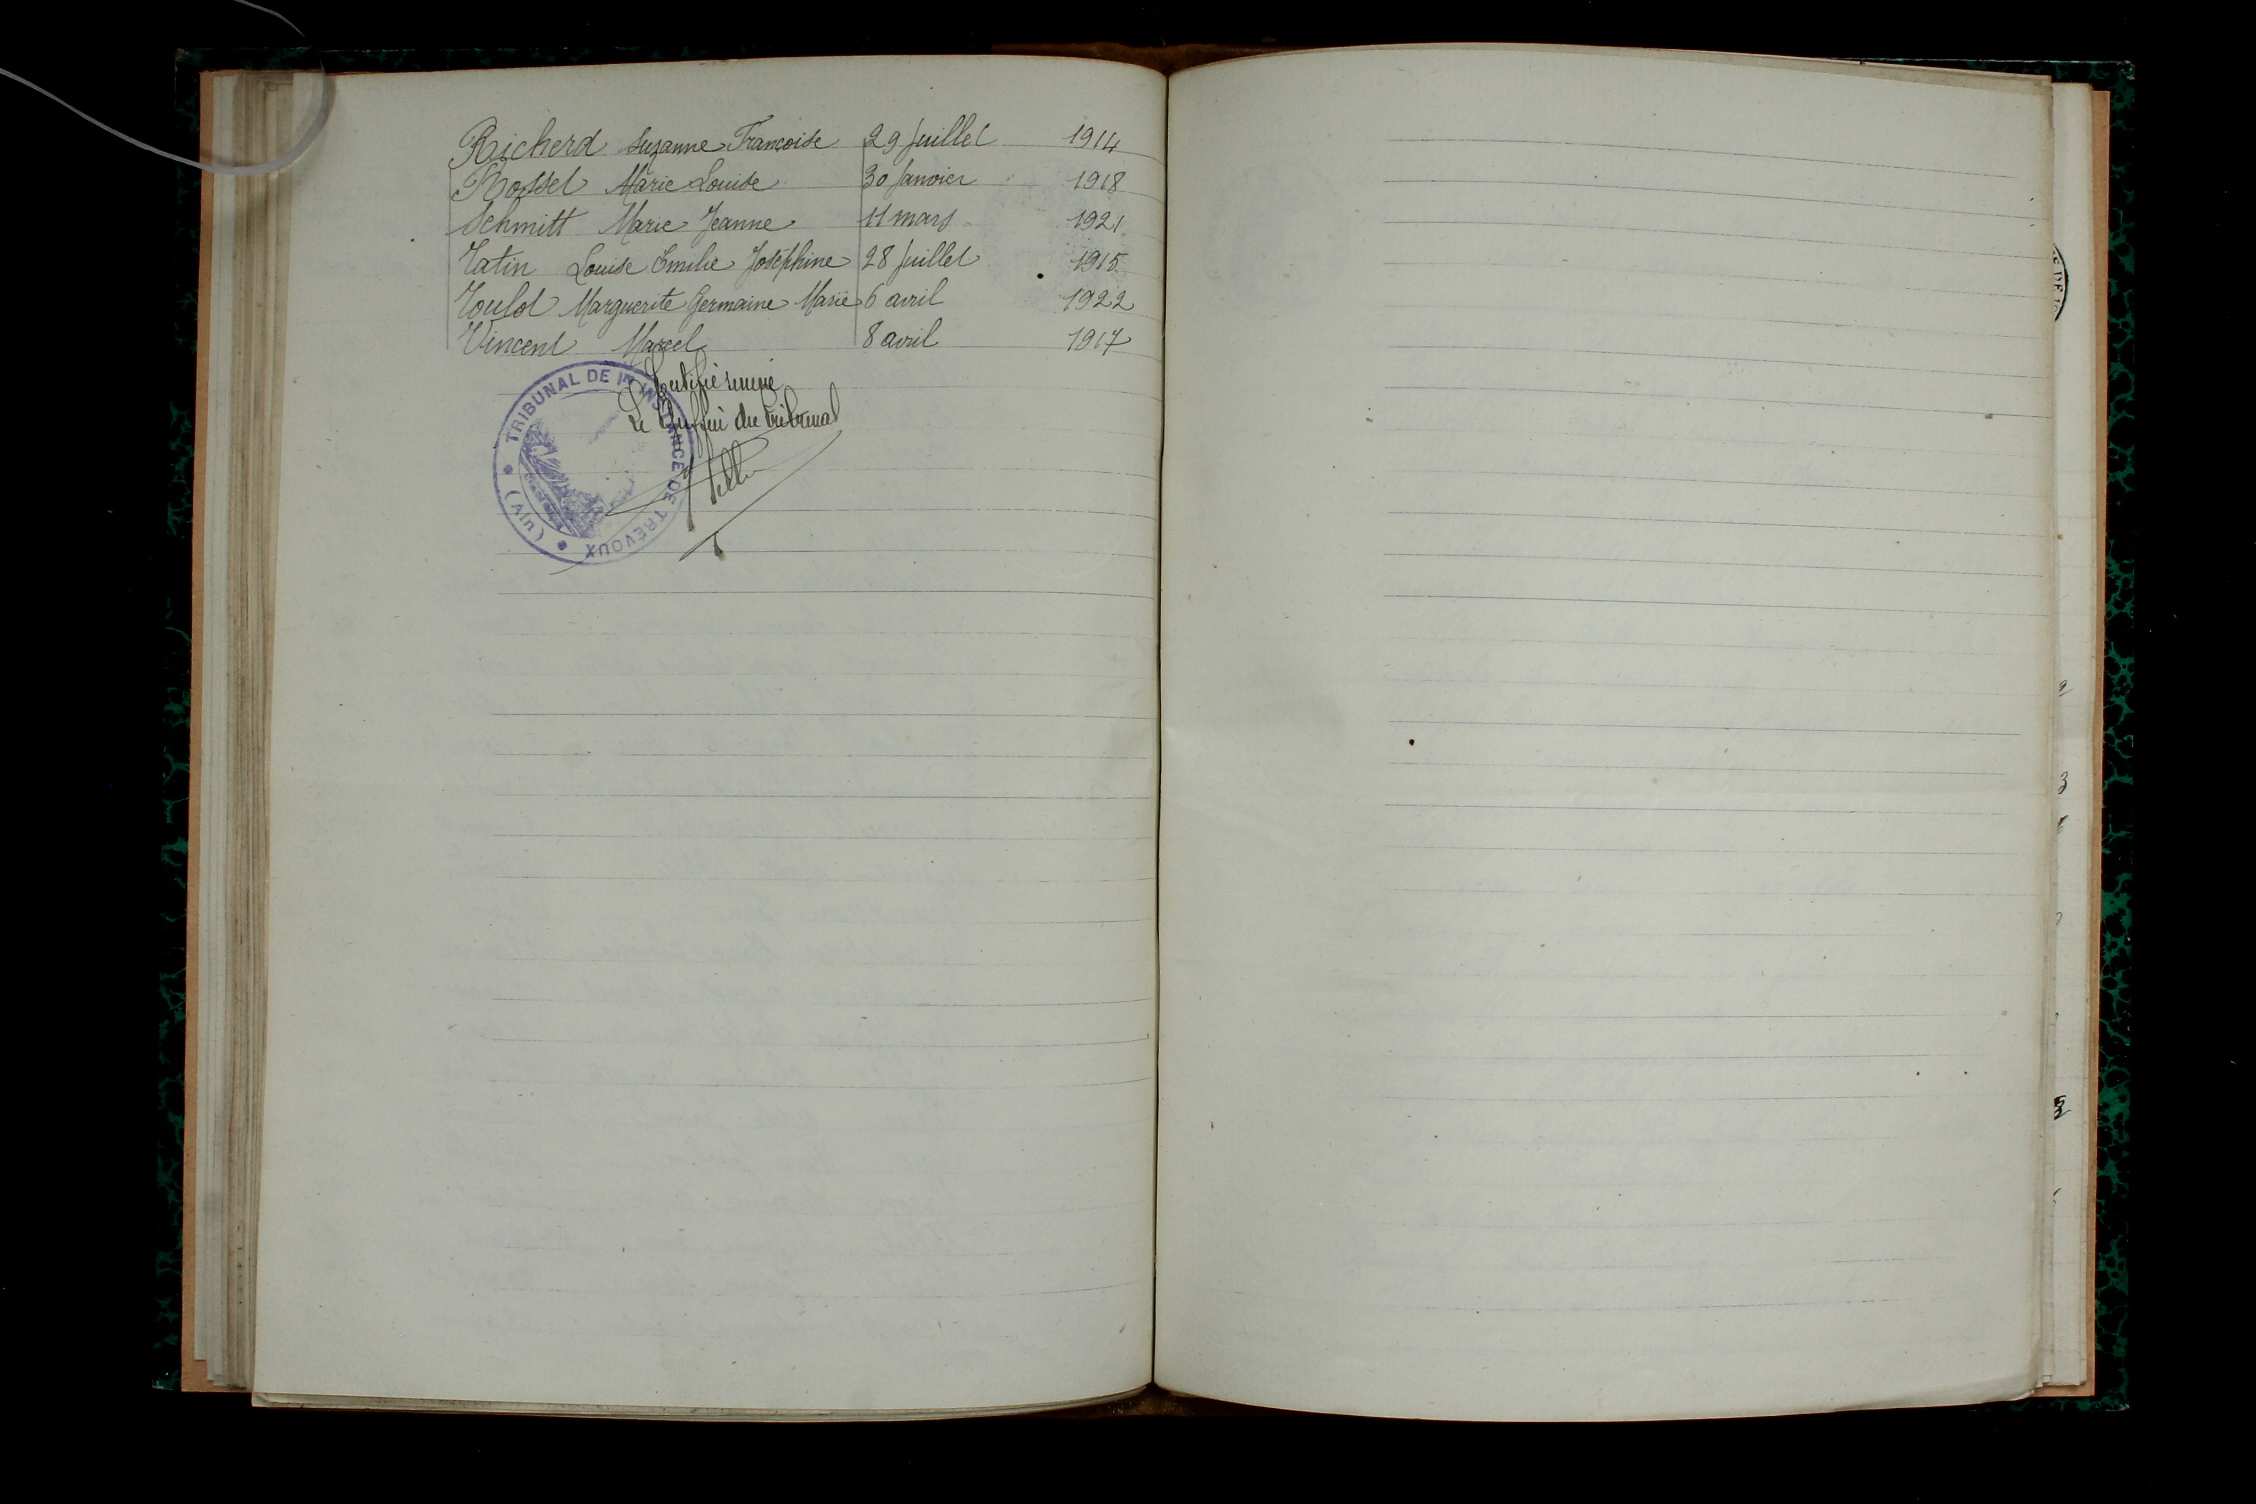 Richerd Suzanne Françoise 29 Juillet 1914
Rosset Marie Louise 30 Janvier 1918
Schmitt Marie Jeanne 11 mars 1921
Tatin Louise Emilie Joséphine 28 Juillet 1915
Toulot Marguerite Germaine Marie 6 avril 1922
Vincent Marcel 8 avril 1917
Le Greffier du tribunal
TRIBUNAL DE 1re INSTANCE DE TREVOUX
(Ain)